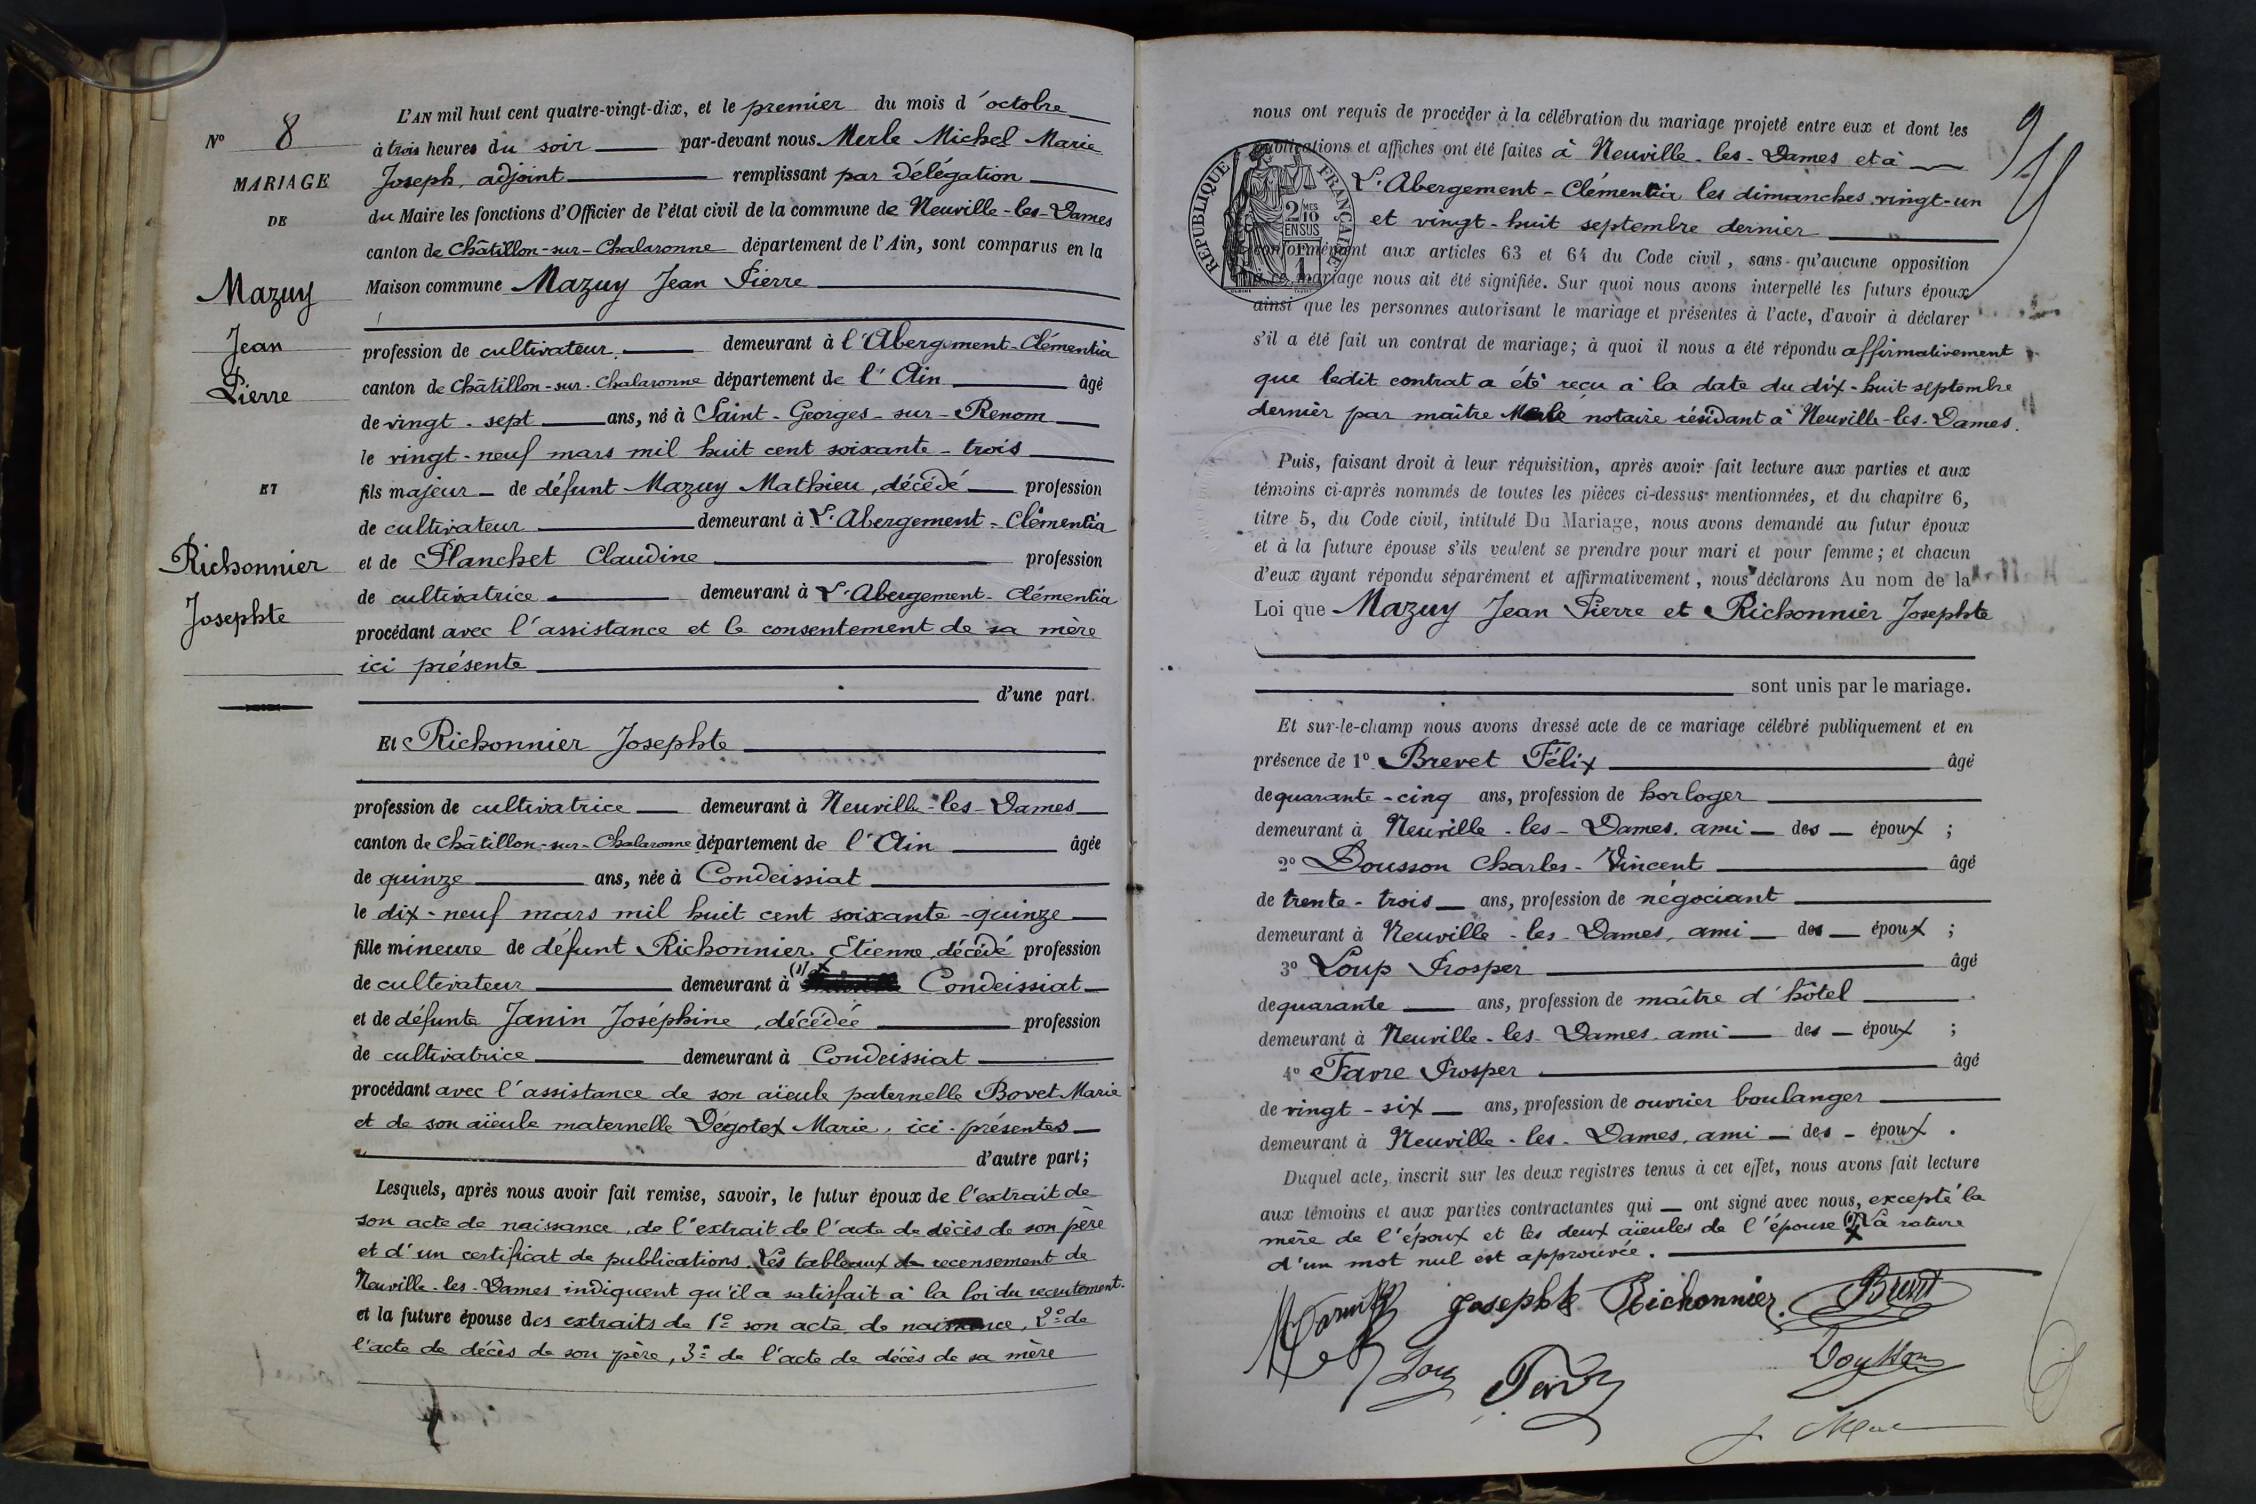 L'AN mil huit cent quatre-vingt-dix, et le premier du mois d'octobre
N° 8
à trois heures du soir par-devant nous Merle Michel Marie
MARIAGE
Joseph, adjoint remplissant par délégation
DE
du Maire les fonctions d'Officier de l'état civil de la commune de Neuville-les-Dames
canton de Châtillon-sur-Chalaronne département de l'Ain, sont comparus en la
Mazuy
Maison commune Mazuy Jean Pierre
Jean
profession de cultivateur demeurant à l'Abergement-Clémentia
Pierre
canton de Châtillon-sur-Chalaronne département de l'Ain âgé
de vingt-sept ans, né à Saint-Georges-sur-Renom
le vingt-neuf mars mil huit cent soixante-trois
ET
fils majeur de défunt Mazuy Mathieu, décédé profession
de cultivateur demeurant à L'Abergement-Clémentia
Richonnier
et de Planchet Claudine profession
Josephte
de cultivatrice demeurant à L'Abergement-Clémentia
procédant avec l'assistance et le consentement de sa mère
ici présente
d'une part.
Et Richonnier Josephte
profession de cultivatrice demeurant à Neuville-les-Dames
canton de Châtillon-sur-Chalaronne département de l'Ain âgée
de quinze ans, née à Condeissiat
le dix-neuf mars mil huit cent soixante-quinze
fille mineure de défunt Richonnier Etienne, décédé profession
de cultivateur demeurant à (1) x Condeissiat
et de défunte Janin Joséphine, décédée profession
de cultivatrice demeurant à Condeissiat
procédant avec l'assistance de son aïeule paternelle Bovet Marie
et de son aïeule maternelle Dégotex Marie, ici présentes
d'autre part;
Lesquels, après nous avoir fait remise, savoir, le futur époux de l'extrait de
son acte de naissance, de l'extrait de l'acte de décès de son père
et d'un certificat de publications. Les tableaux de recensement de
Neuville-les-Dames indiquent qu'il a satisfait à la loi du recrutement.
et la future épouse des extraits de 1° son acte de naissance, 2° de
l'acte de décès de son père, 3° de l'acte de décès de sa mère
nous ont requis de procéder à la célébration du mariage projeté entre eux et dont les
publications et affiches ont été faites à Neuville-les-Dames et à
L'Abergement-Clémentia les dimanches vingt-un
et vingt-huit septembre dernier
conformément aux articles 63 et 64 du Code civil, sans qu'aucune opposition
à ce mariage nous ait été signifiée. Sur quoi nous avons interpellé les futurs époux
ainsi que les personnes autorisant le mariage et présentes à l'acte, d'avoir à déclarer
s'il a été fait un contrat de mariage; à quoi il nous a été répondu affirmativement
que ledit contrat a été reçu à la date du dix-huit septembre
dernier par maître Merle notaire résidant à Neuville-les-Dames.
RÉPUBLIQUE FRANÇAISE
2/10 MES
EN SUS
Puis, faisant droit à leur réquisition, après avoir fait lecture aux parties et aux
témoins ci-après nommés de toutes les pièces ci-dessus mentionnées, et du chapitre 6,
titre 5, du Code civil, intitulé Du Mariage, nous avons demandé au futur époux
et à la future épouse s'ils veulent se prendre pour mari et pour femme; et chacun
d'eux ayant répondu séparément et affirmativement, nous déclarons Au nom de la
Loi que Mazuy Jean Pierre et Richonnier Josephte
sont unis par le mariage.
Et sur-le-champ nous avons dressé acte de ce mariage célébré publiquement et en
présence de 1° Brevet Félix âgé
de quarante-cinq ans, profession de horloger
demeurant à Neuville-les-Dames, ami des époux ;
2° Dousson Charles-Vincent âgé
de trente-trois ans, profession de négociant
demeurant à Neuville-les-Dames, ami des époux ;
3° Loup Prosper âgé
de quarante ans, profession de maître d'hôtel
demeurant à Neuville-les-Dames, ami des époux ;
4° Favre Prosper âgé
de vingt-six ans, profession de ouvrier boulanger
demeurant à Neuville-les-Dames, ami des époux.
Duquel acte, inscrit sur les deux registres tenus à cet effet, nous avons fait lecture
aux témoins et aux parties contractantes qui ont signé avec nous, excepté la
mère de l'époux et les deux aïeules de l'épouse (1) x La rature
d'un mot nul est approuvée.
Josephte Richonnier Brevet
Dousson